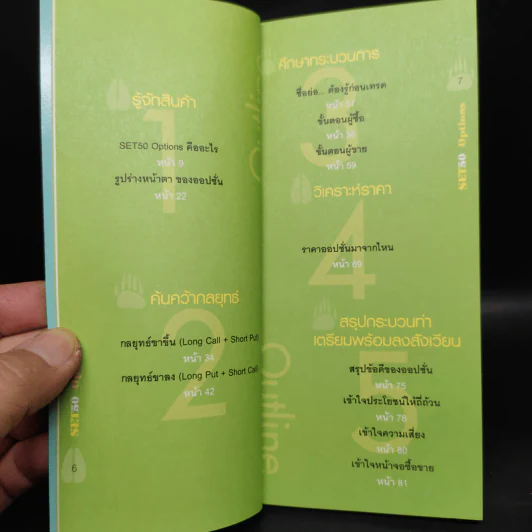 รู้จักสินค้า
1
SET50 Options คืออะไร
หน้า 9
รูปร่างหน้าตา ของออปชั่น
หน้า 22
ค้นคว้ากลยุทธ์
2
กลยุทธ์ขาขึ้น (Long Call + Short Put)
หน้า 34
กลยุทธ์ขาลง (Long Put + Short Call
หน้า 42
SET50
6
Outline
ศึกษากระบวนการ
3
ชื่อย่อ... ต้องรู้ก่อนเทรด
ขั้นตอนผู้ซื้อ
ขั้นตอนผู้ขาย
หน้า 59
วิเคราะห์ราคา
4
ราคาออปชั่นมาจากไหน
หน้า 69
สรุปกระบวนท่า
เตรียมพร้อมลงสังเวียน
5
สรุปข้อดีของออปชั่น
หน้า 75
เข้าใจประโยชน์ให้ถี่ถ้วน
หน้า 78
เข้าใจความเสี่ยง
หน้า 80
เข้าใจหน้าจอซื้อขาย
หน้า 81
7
SET50 Options
Outline